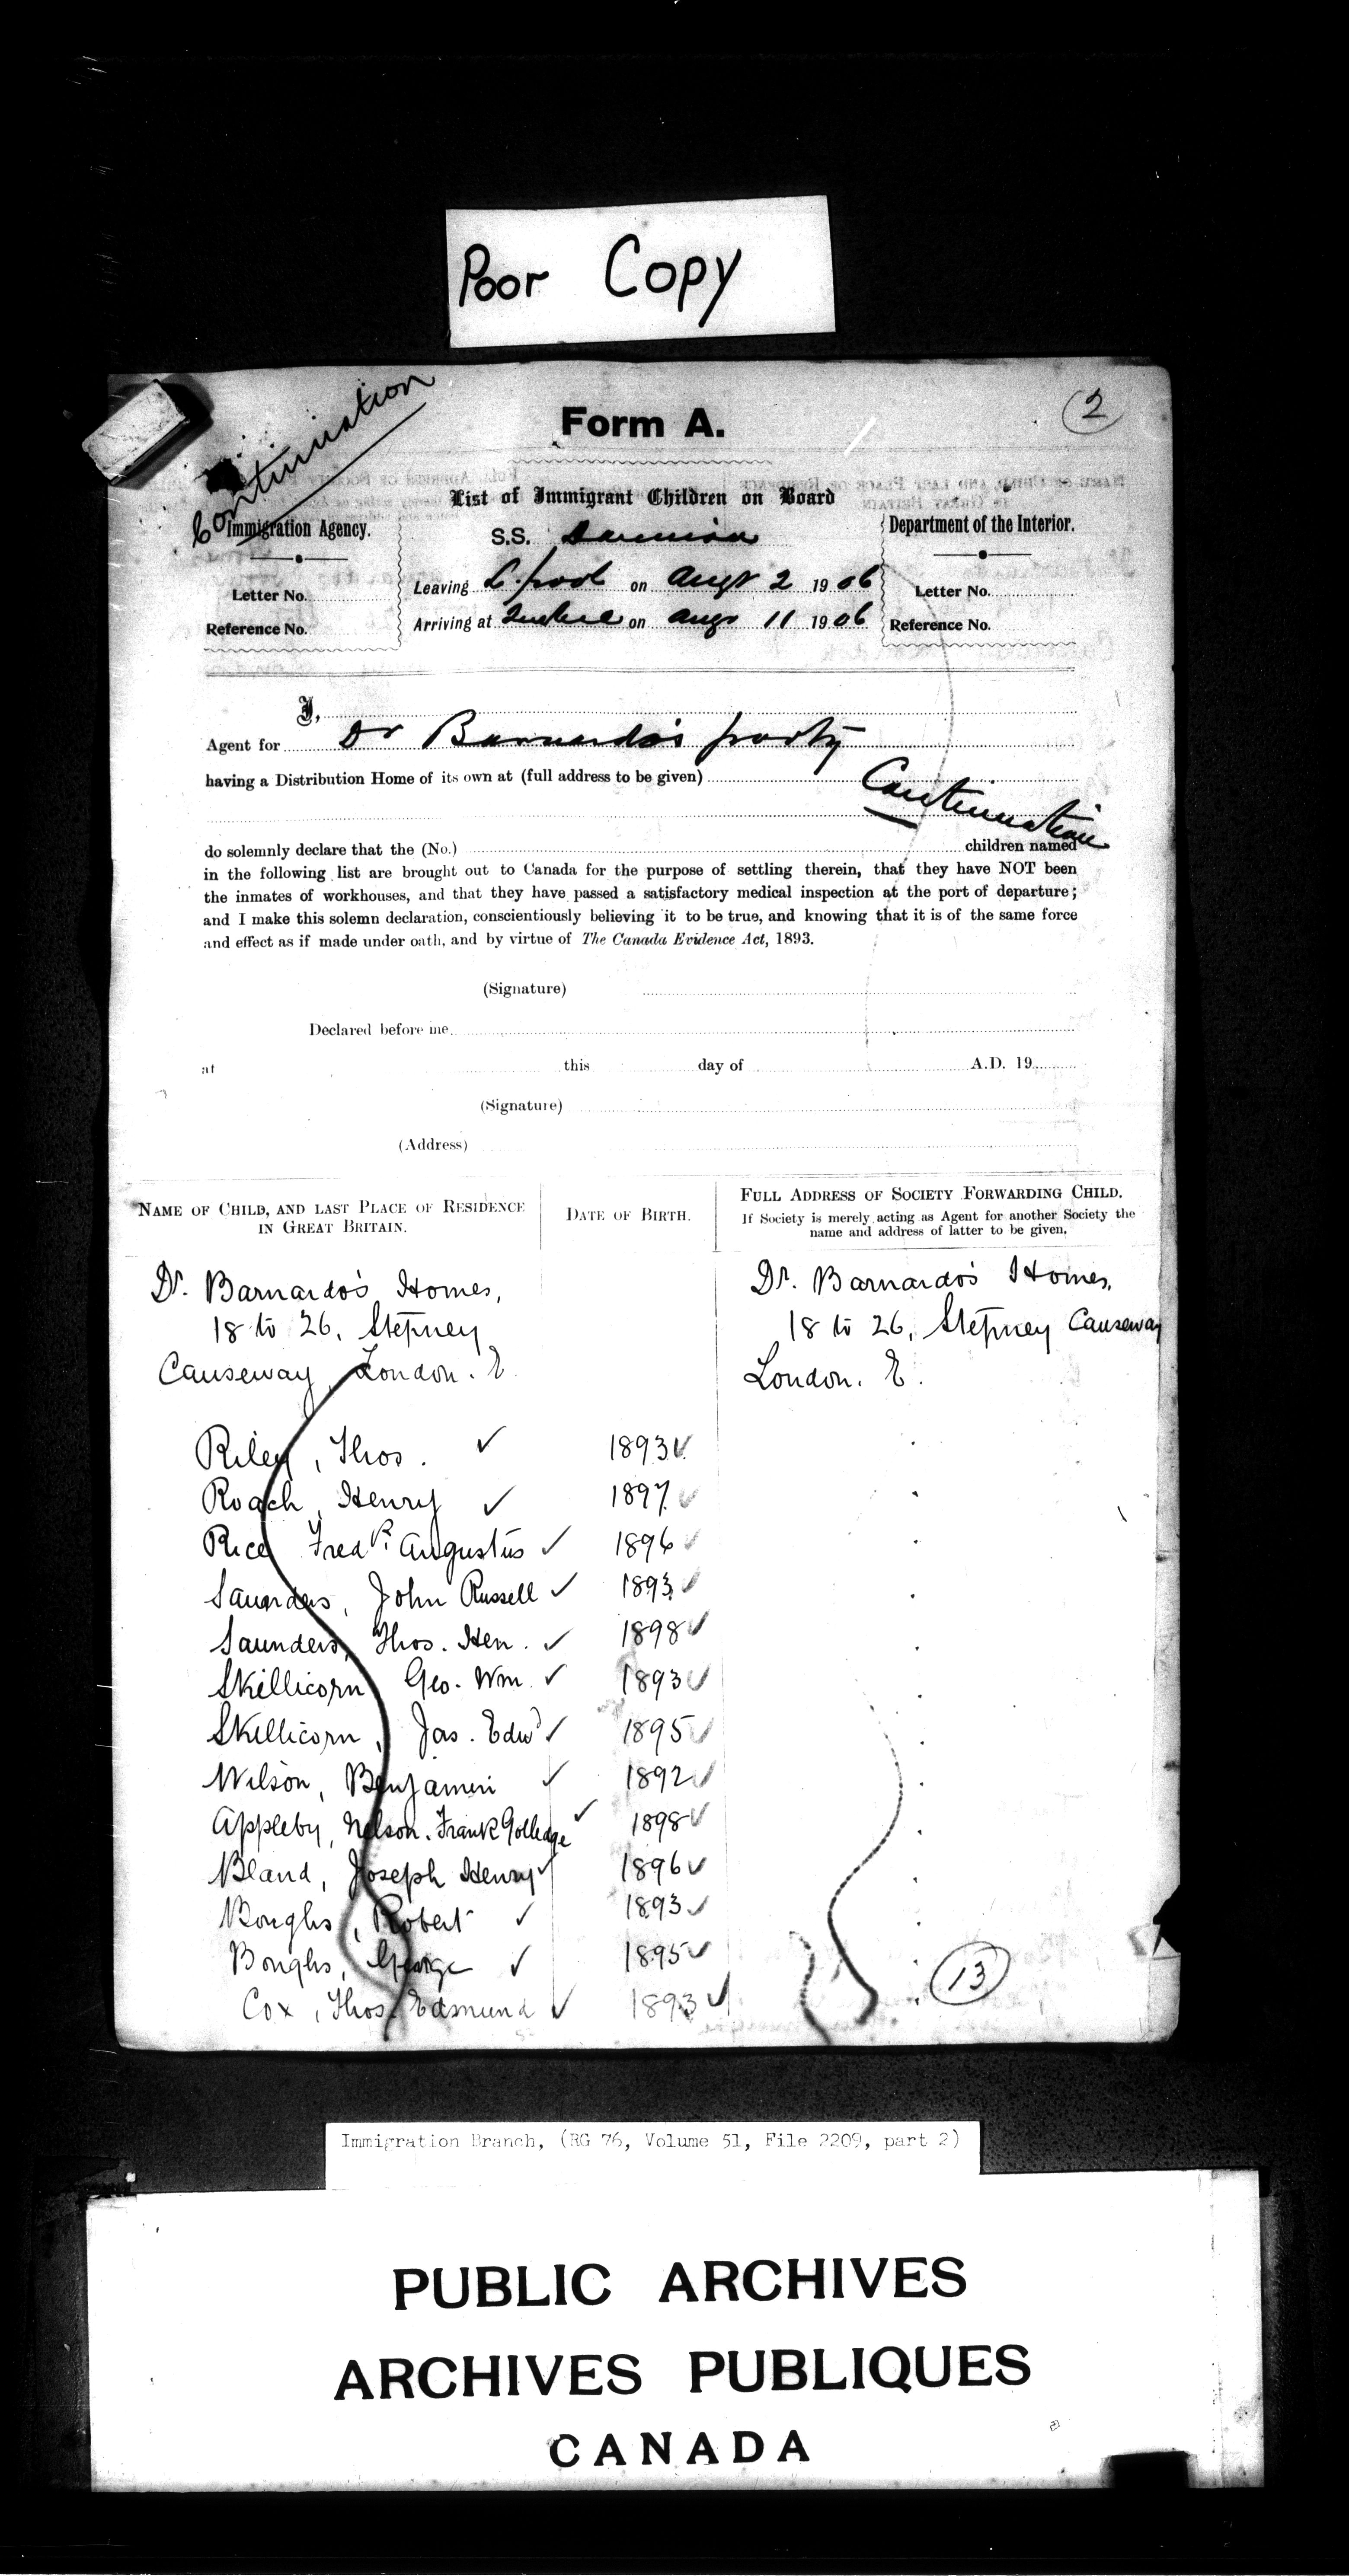 Poor Copy
Continuation
2
Form A.
List of Immigrant Children on Board
Immigration Agency.
S.S.
Department of the Interior.
Letter No.
Leaving L.pool on Augt 2 1906
Letter No.
Reference No.
Arriving at Quebec on Augt 11 1906
Reference No.
I,
Agent for Dr Barnardo's party
having a Distribution Home of its own at (full address to be given)
Continuation
do solemnly declare that the (No.) children named
in the following list are brought out to Canada for the purpose of settling therein, that they have NOT been
the inmates of workhouses, and that they have passed a satisfactory medical inspection at the port of departure;
and I make this solemn declaration, conscientiously believing it to be true, and knowing that it is of the same force
and effect as if made under oath, and by virtue of The Canada Evidence Act, 1893.
(Signature)
Declared before me
at this day of A.D. 19
(Signature)
(Address)
NAME OF CHILD, AND LAST PLACE OF RESIDENCE
IN GREAT BRITAIN.
DATE OF BIRTH.
FULL ADDRESS OF SOCIETY FORWARDING CHILD.
If Society is merely acting as Agent for another Society the
name and address of latter to be given.
Dr. Barnardo's Homes,
18 to 26, Stepney
Causeway, London. E.
Dr. Barnardo's Homes,
18 to 26, Stepney Causeway
London. E.
Riley, Thos. ✓ 1893 ✓
Roach, Henry ✓ 1897 ✓
Rice Fredk. Augustus ✓ 1896 ✓
Saunders, John Russell ✓ 1893 ✓
Saunders, Thos. Hen. ✓ 1898 ✓
Skillicorn, Geo. Wm. ✓ 1893 ✓
Skillicorn, Jas. Edwd ✓ 1895 ✓
Wilson, Benjamin ✓ 1892 ✓
Appleby, Nelson. Frank Golledge ✓ 1898 ✓
Bland, Joseph Henry ✓ 1896 ✓
Boughs, Robert ✓ 1893 ✓
Boughs, George ✓ 1895 ✓
Cox, Thos. Edmund ✓ 1893 ✓
13
Immigration Branch, (RG 76, Volume 51, File 2209, part 2)
PUBLIC ARCHIVES
ARCHIVES PUBLIQUES
CANADA